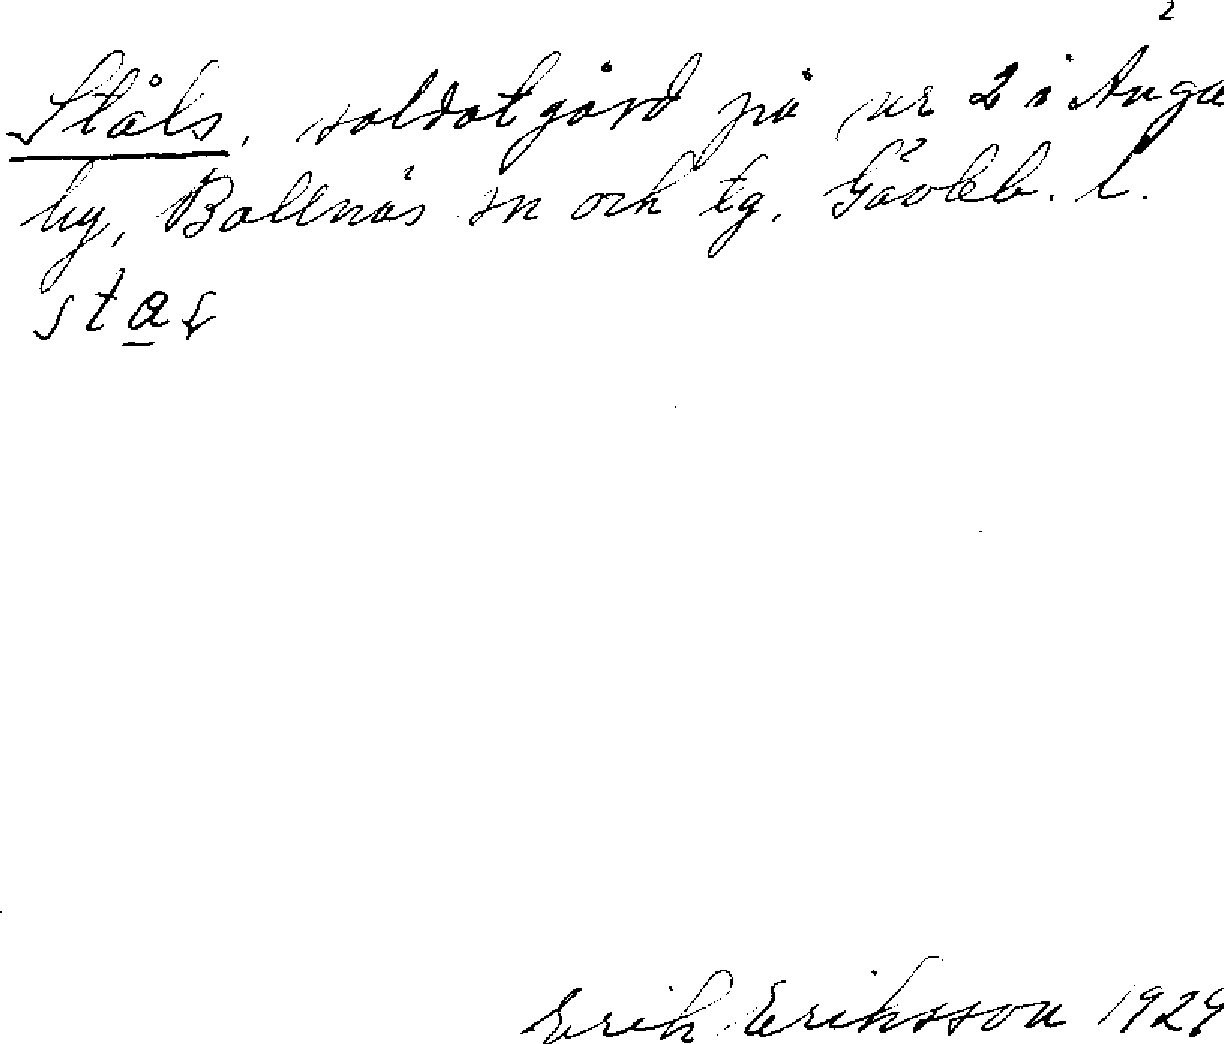 2
Ståls, soldatgård på nr 2 i Änga
by, Bollnäs sn och tg. Gävleb. l.
Erik Eriksson 1929